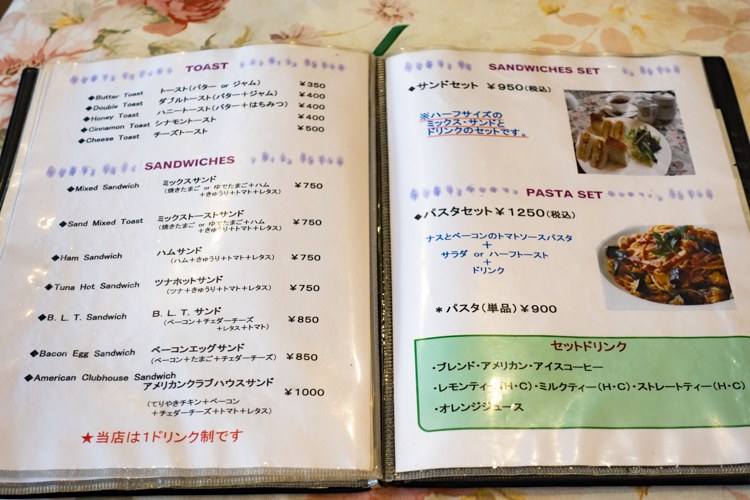 TOAST
◆Butter Toast トースト(バター or ジャム) ¥350
◆Double Toast ダブルトースト(バター+ジャム) ¥400
◆Honey Toast ハニートースト(バター+はちみつ) ¥400
◆Cinnamon Toast シナモントースト ¥400
◆Cheese Toast チーズトースト ¥500
SANDWICHES
◆Mixed Sandwich ミックスサンド ¥750
(焼きたまご or ゆでたまご+ハム
+きゅうり+トマト+レタス)
◆Sand Mixed Toast ミックストーストサンド ¥750
(焼きたまご or ゆでたまご+ハム
+きゅうり+トマト+レタス)
◆Ham Sandwich ハムサンド ¥750
(ハム+きゅうり+トマト+レタス)
◆Tuna Hot Sandwich ツナホットサンド ¥750
(ツナ+きゅうり+トマト+レタス)
◆B. L. T. Sandwich B. L. T. サンド ¥850
(ベーコン+チェダーチーズ
+レタス+トマト)
◆Bacon Egg Sandwich ベーコンエッグサンド ¥850
(ベーコン+たまご+チェダーチーズ)
◆American Clubhouse Sandwich
アメリカンクラブハウスサンド ¥1000
(てりやきチキン+ベーコン
+チェダーチーズ+トマト+レタス)
★当店は1ドリンク制です
SANDWICHES SET
◆サンドセット ¥950(税込)
※ハーフサイズの
ミックス・サンドと
ドリンクのセットです。
PASTA SET
◆パスタセット¥1250(税込)
ナスとベーコンのトマトソースパスタ
+
サラダ or ハーフトースト
+
ドリンク
*パスタ(単品)¥900
セットドリンク
・ブレンド・アメリカン・アイスコーヒー
・レモンティー(H・C)・ミルクティー(H・C)・ストレートティー(H・C)
・オレンジジュース